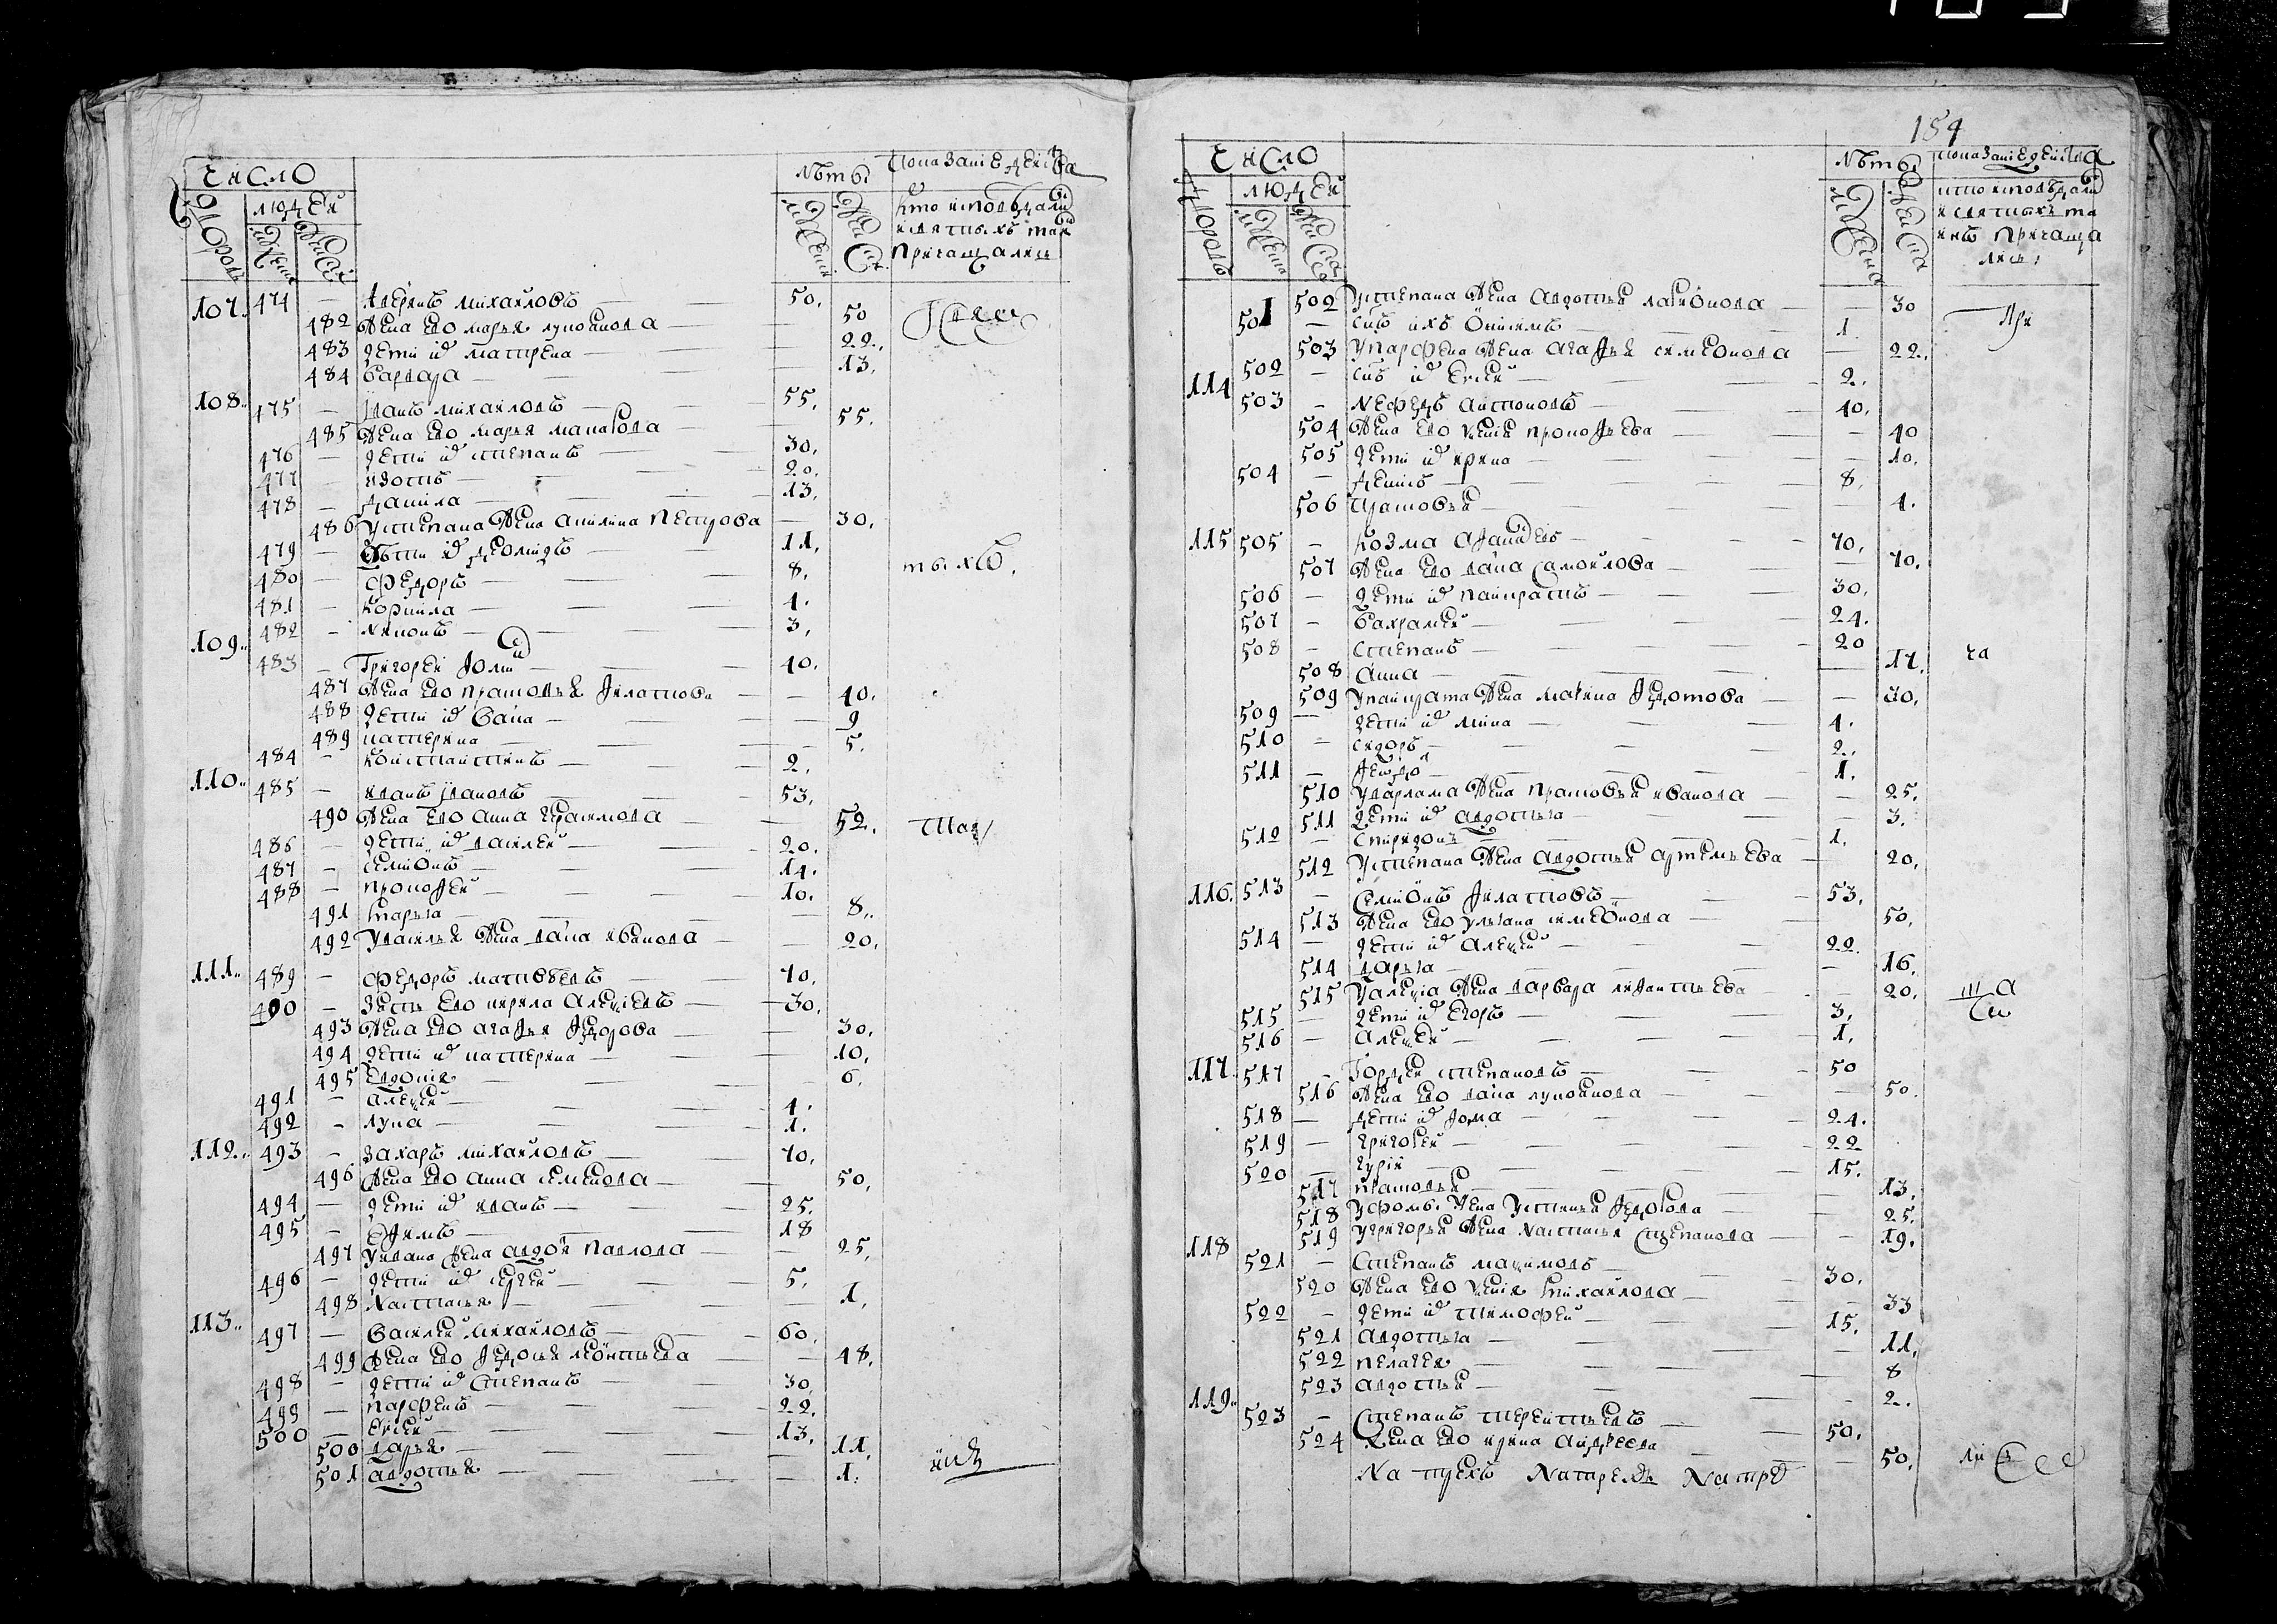 число
лѣты
показание действа
дворовъ
людей
мужеска
женска
мужеска
женска
кто исповѣдали
и святыхъ таин
причащались
107. 474 — Аверкиѣ михаиловъ — 50.
482 жена ево марья лукоянова — 50
483 дети их матрена — 22.
484 варвара — 13.
108. 475 — Иванъ михаиловъ — 55.
485 жена ево марья макарова — 55.
476 — дети их степанъ — 30.
477 — изотъ — 20.
478 — данила — 13.
486 У степана жена акилина петрова — 30.
479 — дѣти их демидъ — 11.
480 — федоръ — 8.
тыхъ.
481 — корнила — 4.
482 — никонъ — 3.
109. 483 — Григореи фомин — 40.
487 жена ево прасковья филатова — 40.
488 дети их васа — 9
489 катерина — 5.
484 — констянтинъ — 2.
110. 485 — иванъ ивановъ — 53.
490 жена ево анна герасимова — 52.
таи
486 — дети их василеи — 20.
487 — семионъ — 14.
488 — прокофеи — 10.
491 марья — 8.
492 У василья жена васа иванова — 20.
111. 489 — федоръ матвѣевъ — 70.
490 — Зять ево кирила алексиевъ — 30.
493 жена ево агафья федорова — 30.
494 дети их катерина — 10.
495 Евдокия — 6.
491 — алексеи — 4.
492 — лука — 1.
112. 493 — захаръ михаиловъ — 70.
496 жена ево анна семенова — 50.
494 — дети их иванъ — 25.
495 — ефимъ — 18
497 У ивана жена авдотья павлова — 25.
496 — дети их сергеи — 5.
498 настасья — 1.
113. 497 — василеи михаиловъ — 60.
499 жена ево федосья леонтьева — 48.
498 — дети их степанъ — 30.
499 — парфенъ — 22.
500 — евсеи — 13.
500 дарья — 11.
501 авдотья — 1.
184
число
лѣты
показание действа
дворовъ
людей
мужеска
женска
мужеска
женска
кто исповѣдали
и святыхъ та
инъ причаща
лись
502 У степана жена авдотья ларионова — 30
501 — сынъ ихъ онисимъ — 1.
при
503 У парфена жена агафья симеонова — 22.
502 — сынъ их евсеи — 2.
114 503 — нефедъ антоновъ — 40.
504 жена ево ксения прокофьева — 40
505 дети их ирина — 10.
504 — денисъ — 8.
506 прасковья — 4.
115 505 — козма афанасиевъ — 70.
507 жена ево васа самоилова — 70.
506 — дети их панкратъ — 30.
507 — варламеи — 24.
508 — степанъ — 20
508 анна — 17.
ча
509 У панкрата жена марина федотова — 30.
509 — дети их мина — 4.
510 — сидоръ — 2.
511 — федоръ — 1.
510 У варлама жена прасковья иванова — 25.
511 дети их авдотья — 3.
512 — спиридонъ — 1.
512 У степана жена авдотья артемьева — 20.
116. 513 — семионъ филатовъ — 53.
513 жена ево ульяна симеонова — 50.
514 — дети их алексеи — 22.
514 дарья — 16.
515 У алексиа жена варвара лифантьева — 20.
ща
515 — дети их егоръ — 3.
516 — алексеи — 1.
117. 517 — Гордеи степановъ — 50
516 жена ево васа лукоянова — 50.
518 — дети их фома — 24.
519 — григореи — 22
520 — гурии — 15.
517 прасковья — 13.
518 У фомы жена устинья федорова — 25.
519 У григорья жена настасья степанова — 19.
118 521 — Степанъ максимовъ — 30.
520 жена ево ксения михаилова — 33
522 — дети их тимофеи — 15.
521 авдотья — 11.
522 пелагея — 8
523 авдотья — 2.
119. 523 — Степанъ терентьевъ — 50.
524 жена ево ирина андреева — 50.
На трехъ